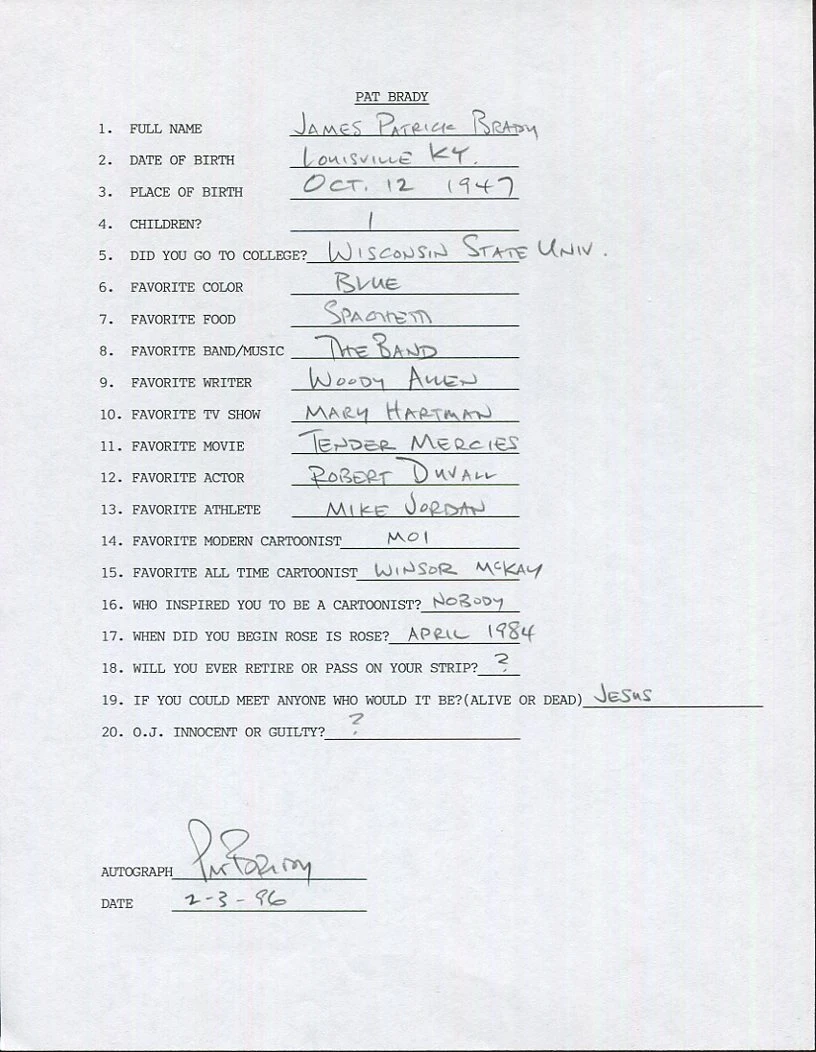 PAT BRADY
1. FULL NAME JAMES PATRICK BRADY
2. DATE OF BIRTH LOUISVILLE KY.
3. PLACE OF BIRTH OCT. 12 1947
4. CHILDREN? 1
5. DID YOU GO TO COLLEGE? WISCONSIN STATE UNIV.
6. FAVORITE COLOR BLUE
7. FAVORITE FOOD SPAGHETTI
8. FAVORITE BAND/MUSIC THE BAND
9. FAVORITE WRITER WOODY ALLEN
10. FAVORITE TV SHOW MARY HARTMAN
11. FAVORITE MOVIE TENDER MERCIES
12. FAVORITE ACTOR ROBERT DUVALL
13. FAVORITE ATHLETE MIKE JORDAN
14. FAVORITE MODERN CARTOONIST MOI
15. FAVORITE ALL TIME CARTOONIST WINSOR McKAY
16. WHO INSPIRED YOU TO BE A CARTOONIST? NOBODY
17. WHEN DID YOU BEGIN ROSE IS ROSE? APRIL 1984
18. WILL YOU EVER RETIRE OR PASS ON YOUR STRIP? ?
19. IF YOU COULD MEET ANYONE WHO WOULD IT BE?(ALIVE OR DEAD) JESUS
20. O.J. INNOCENT OR GUILTY? ?
AUTOGRAPH Pat Brady
DATE 2-3-96